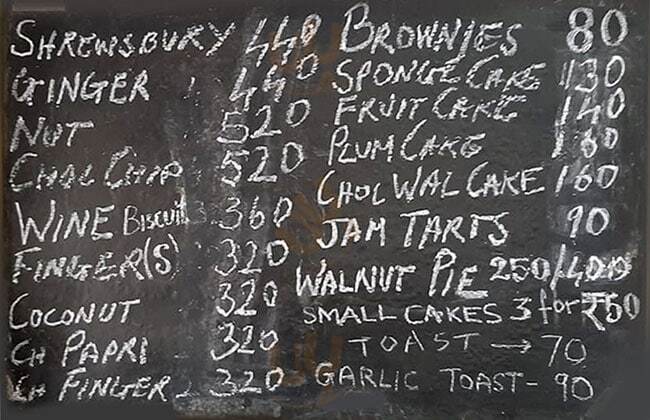 SHREWSBURY 440
GINGER 440
NUT 520
CHOC CHIP 520
WINE Biscuit 360
FINGER(S) 320
COCONUT 320
CH PAPRI 320
CH FINGER 320
BROWNIES 80
SPONGE CAKE 130
FRUIT CAKE 140
PLUM CAKE
CHOC WAL CAKE 160
JAM TARTS 90
WALNUT PIE 250/400
SMALL CAKES 3 for ₹50
TOAST → 70
GARLIC TOAST - 90